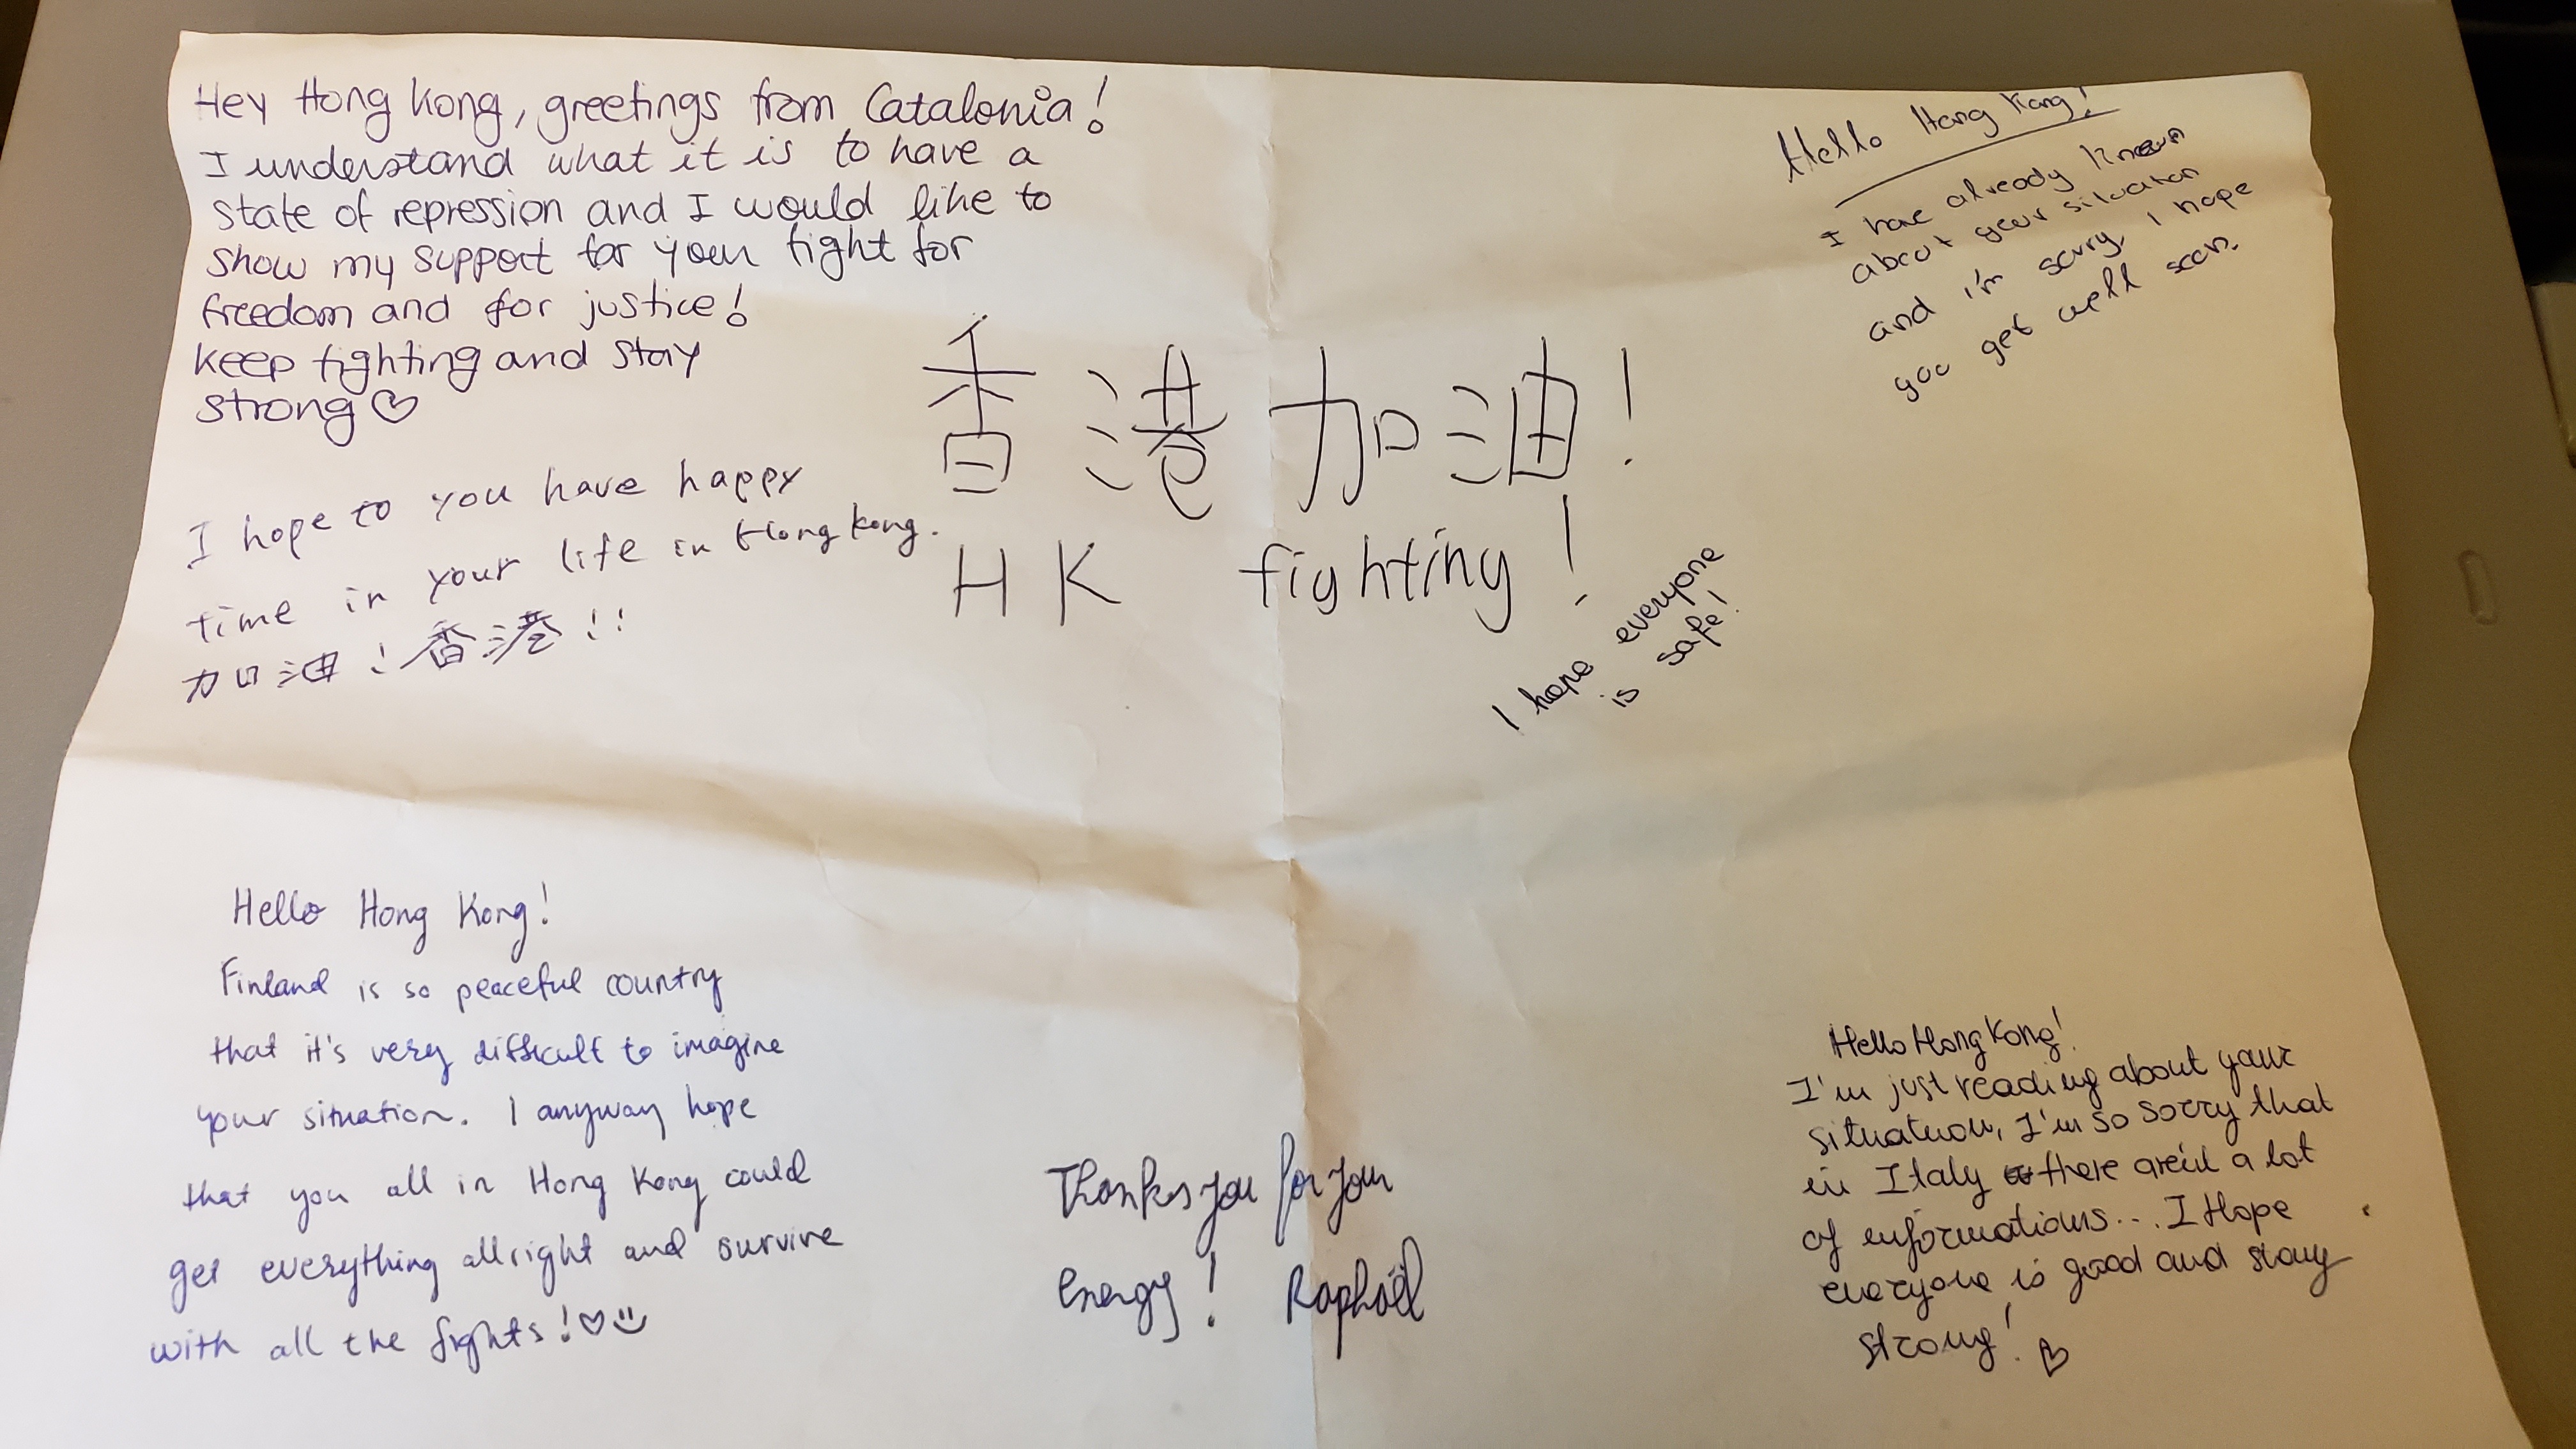 Hey Hong Kong, greetings from Catalonia!
I understand what it is to have a
state of repression and I would like to
show my support for your fight for
freedom and for justice!
keep fighting and stay
strong♡
Hello Hong Kong!
I have already known
about your situation
and i'm sorry, I hope
you get well soon.
香港加油!
HK fighting!
I hope everyone
is safe!
I hope to you have happy
time in your life in Hong Kong.
加油!香港!!
Hello Hong Kong!
Finland is so peaceful country
that it's very difficult to imagine
your situation. I anyway hope
that you all in Hong Kong could
get everything allright and survive
with all the fights!♡
Thanks you for your
energy! Raphaël
Hello Hong Kong!
I'm just reading about your
situation, I'm so sorry that
in Italy there aren't a lot
of informations... I Hope
everyone is good and stay
strong! ♡